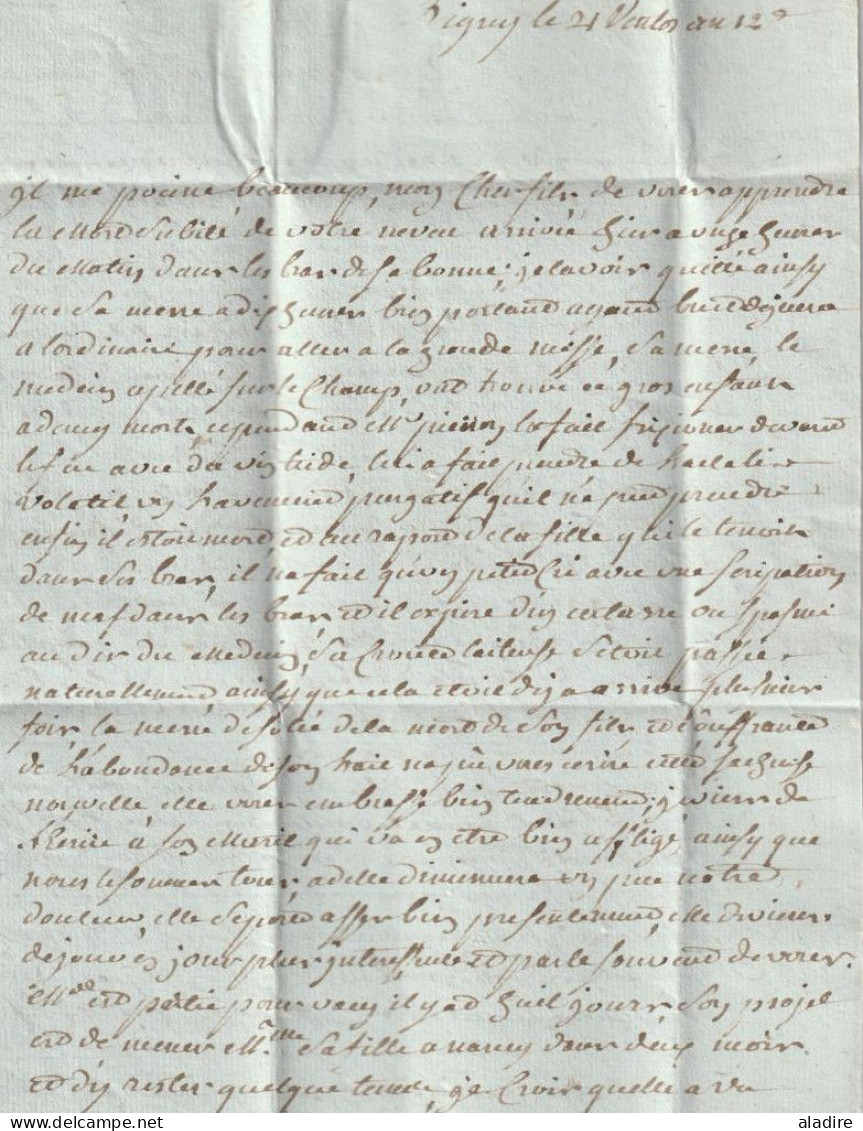 Ligny le 21 Ventos an 12e
il me peine beaucoup, mon Cher fils de vous apprendre
la Mort Subite de votre neveu arrivée hier a onze heures
du Matin dans les bras de sa bonne; je lavoir quitté ainsy
que Sa mere a dix heures bien portand ayand bien dejuné
a lordinaire pour aller a la grande messe, Sa mere, le
medecin apellé Sur le Champ, ont trouvé ce gros enfant
adeny mort, cependand Mr pierson la fait frixionner devand
le feu avec du vin tiede, lui a fait prendre de Lalcali
volatil, un Lavemend purgatif quil n'a pud prendre
enfin il estoit mord et au raport de la fille qui le tenoit
dans Ses bras, il na fait qu'un petit Cri avec une
de nerf dans les bras et il expire d'un catarre ou Spasme
au dir du Medecin, Sa Croute laiteuse Setoit passée
naturellemend ainsy que cela etoit deja arrivé plusieur
fois la mere desolé de la mort de Son fils et Souffrante
de L'abondance de Son lait na pu vous ecrire cette facheuse
nouvelle elle vous embrasse bien tendremend; je viens de
L'ecrire à Son Marit qui va en etre bien affligé, ainsy que
nous le sommes tous, adelle diminuera un peu notre
douleur, elle Se porte assez bien presentemend, elle deviens
de jour en jour plus interessante et parle Souvend de vous.
Mde est partie pour il y a huit jours, Son projet
est de mener Mme Sa fille a nancy dans deux mois
et d'y rester quelque tems, je Crois quelle a vu